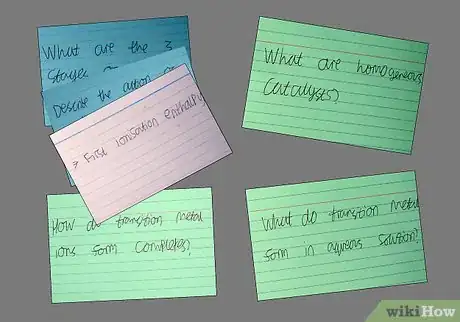 What are the 3
Stages
Describe the action of
> First ionisation enthalpy
What are homogeneous
Catalysts?
How do transition metal
ions form complexes?
What do transition metal
form in aqueous solution?
wikiHow